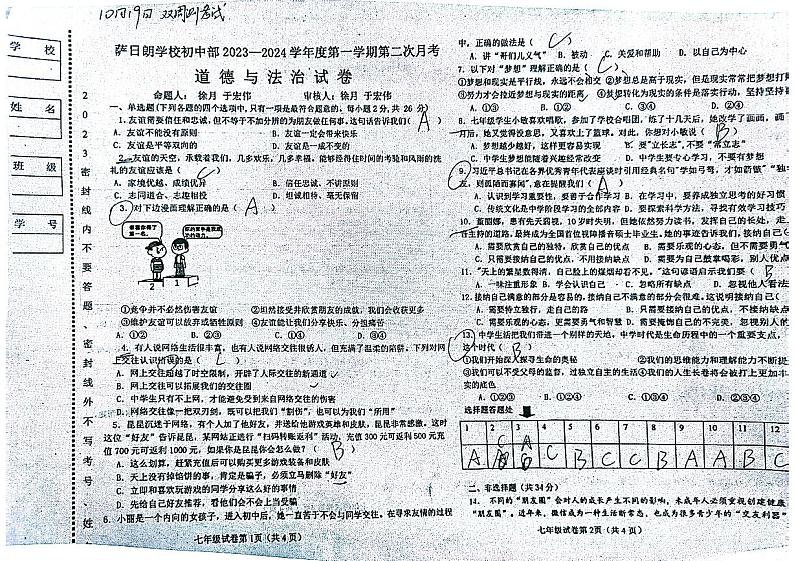 10月19日 双周测考试
学 校
姓 名
班 级
学 号
2023密封线内不要答题、密封线外不写考号、姓
萨日朗学校初中部 2023—2024 学年度第一学期第二次月考
道 德 与 法 治 试 卷
命题人: 徐月 于宏伟 审核人: 徐月 于宏伟
一、单选题(下列各题的四个选项中,只有一项是最符合题意的,每小题 2 分,共 26 分)
1.友谊需要信任和忠诚,但不等于不加分辨的为朋友做任何事,这句话告诉我们( A )
A. 友谊不能没有原则 B. 友谊一定会带来快乐
C. 友谊是平等双向的 D. 友谊是一成不变的
2.友谊的天空,承载着我们,几多欢乐,几多幸福,能够经得住时间的考验和风雨的洗
礼的友谊应该是( C )
A. 家境优越、成绩优异 B. 信任忠诚、不讲原则
C. 志同道合、志趣相投 D. 坦诚相待、毫无保留
3. 对下边漫画理解正确的是( A )
看着你得了第一名。
2 1
①竞争并不必然伤害友谊 ②坦然接受并欣赏朋友的成就,我们会收获更多
③维护友谊可以放弃或牺牲原则 ④友谊能让我们分享快乐、分担痛苦
A. ①② B. ②③ C. ①④ D. ③④
4. 有人说网络生活很丰富,也有人说网络交往很诱人,但充满了温柔的陷阱,下列对网
上交往认识错误的是( C )
A. 网上交往超越了时空限制,开辟了人际交往的新通道
B. 网上交往可以拓展我们的交往圈
C. 中学生只有不上网,才能避免受到来自网络交往的伤害
D. 网络交往像一把双刃剑,既可以把我们“割伤”,也可以为我们“所用”
5. 昆昆沉迷于网络,有个人加了他好友,并送给他游戏英雄和皮肤,昆昆非常感激。这时
这位“好友”告诉昆昆,某网站正进行“扫码转账返利”活动,充值 300 元可返利 500 元充
值 700 元可返利 1000 元,如果你是昆昆你会怎么做?( B )
A. 这么划算,赶紧充值后可以购买更多游戏装备和皮肤
B. 天上没有掉馅饼的事,肯定是骗子,必须立马删除“好友”
C. 立即和喜欢玩游戏的同学分享这么好的事情
D. 先给自己好友推荐,看他们会不会上当受骗
6. 小丽是一个内向的女孩子,进入初中后,她一直苦于不会与同学交往。在寻求友情的过程
七年级试卷第 1 页(共 4 页)
中,正确的做法是( C )
A. 讲“哥们儿义气” B. 被动 C. 关爱和帮助 D. 以自己为中心
7. 以下对“梦想”理解正确的是( C )
①梦想和现实是平行线,永远不会相交 ②梦想总是高于现实,但是现实常常把梦想打
③努力才会拉近梦想与现实的距离 ④梦想转化为现实的条件是落实行动,坚持坚持
A. ①③ B. ①② C. ③④ D. ②④
8. 七年级学生小敏喜欢唱歌,参加了学校合唱团,练了十几天后,她改学了画画,画
开后,她又觉得没意思,又喜欢上了篮球。对此,你想对小敏说( B )
A. 梦想越少越好,这样更容易实现 B. 要“立长志”,不要“常立志”
C. 中学生梦想能随着兴趣经常改变 D. 中学生要专心学习,不要有梦想
9. 习近平总书记在各界优秀青年代表座谈时引用经典名句“学如弓弩,才如箭镞”“独
友,则孤陋而寡闻”,意在提醒我们( A )
A. 认识到学习重要性,要善于合作学习 B. 在学习中,要养成独立思考的好习惯
C. 传统文化是中学阶段学习的全部内容 D. 要探索科学方法,寻找有效学习技巧
10. 董丽娜,患有先天弱视,10 岁时失明,但她依然努力读书,发挥自己的长处,走
各主持的道路,最终成为全国首位视障播音硕士毕业生。她的事迹告诉我们,接纳自己(
A. 需要欣赏自己的独特,欣赏自己的优点 B. 需要乐观的心态,但不需要勇气
C. 只需要接纳自己的优点,不用接纳缺点 D. 需要为自己鼓掌喝彩,别人优点
11. “天上的繁星数得清,自己脸上的煤烟却看不见。”这句谚语启示我们要( B
A. 一味注重形象 B. 学会认识自己 C. 忽略所有缺点 D. 忽视他人看法
12. 接纳自己满意的部分是容易的,接纳自己不满意的部分会很难。这说明接纳自己(
A. 需要特立独行,走自己的路 B. 只需要接纳自己的优点,不接纳缺点
C. 需要乐观的心态,更需要勇气和智慧 D. 需要掩饰自己的不完美,忽视别人的
13. 中学生活把我们带进一个别样的天地,中学时代是生命历程中的一个重要支点,
这个时代( B
①我们开始探寻生命的奥秘 ②我们的思维能力和理解能力不断提
③我们可以不受父母的监督,过独立自主的生活 ④我们的人生长卷将会被打上更加丰
实的底色
A. ①②③ B. ①②④ C. ①③④ D. ②③④
选择题答题处
1 2 3 4 5 6 7 8 9 10 11 12
C A
A C B C C B A A B C
二、非选择题(共 34 分)
14. 不同的“朋友圈”会对人的成长产生不同的影响,未成年人必须重视创建健康
“朋友圈”。近年来,微信成为一种生活新常态,也成为很多青少年的“交友利器”
七年级试卷第 2 页(共 4 页)